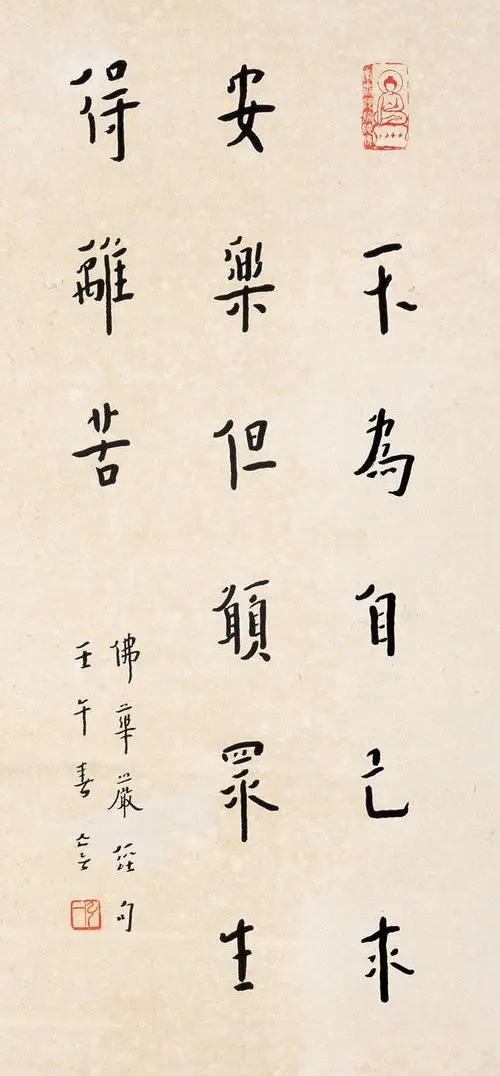 不為自己求
安樂但願眾生
得離苦
佛華嚴經句
壬午春亡言